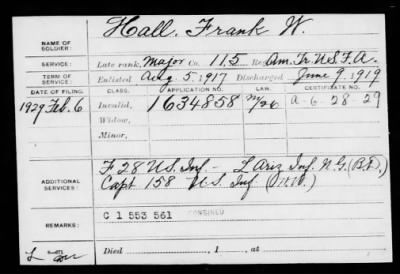 Hall, Frank W.
NAME OF SOLDIER:
SERVICE: Late rank, Major Co. 115 Reg. Am. Tr. U.S.F.A.
TERM OF SERVICE: Enlisted Aug 5, 1917 Discharged June 9, 1919
DATE OF FILING. CLASS. APPLICATION NO. LAW. CERTIFICATE NO.
1929 Feb. 6 Invalid, 1634858 A-6 28 29
Widow,
Minor,
ADDITIONAL SERVICES: F 28 U.S. Inf - L Ariz Inf. N.G.
Capt 158 U.S. Inf
REMARKS: C 1 553 561 COMBINED
Died , 1 , at